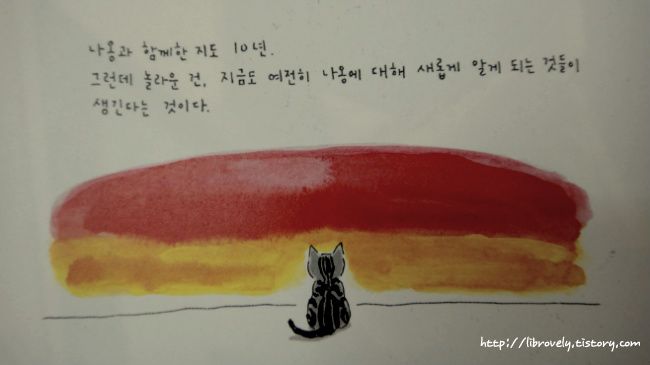 나옹과 함께한 지도 10년.
그런데 놀라운 건, 지금도 여전히 나옹에 대해 새롭게 알게 되는 것들이
생긴다는 것이다.
http://librovely.tistory.com